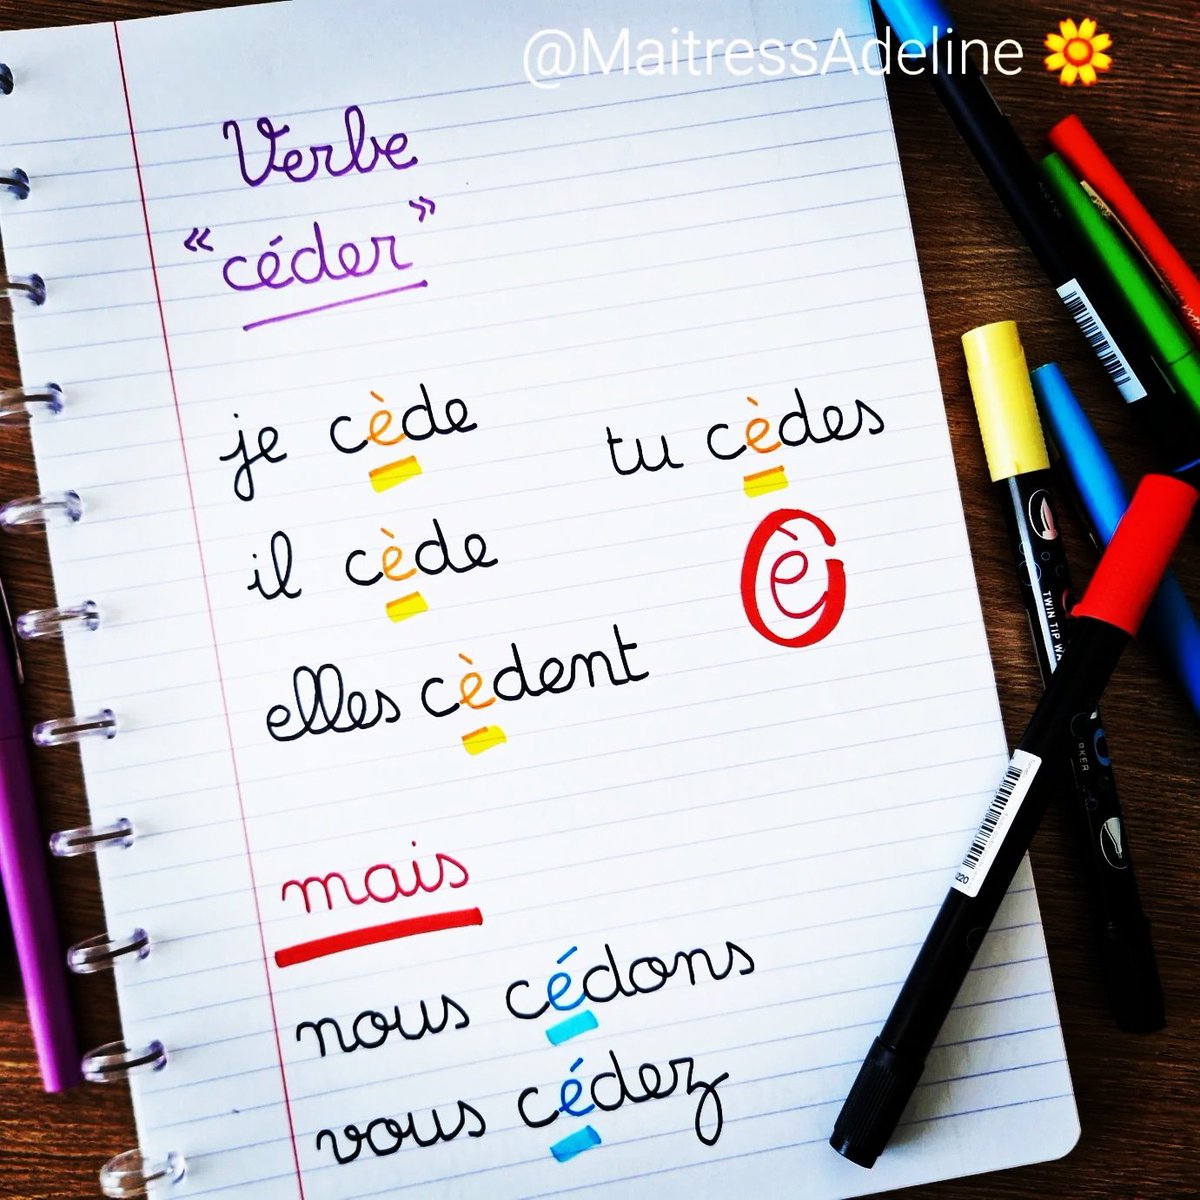 @MaitressAdeline 🌼
Verbe
"céder"
je cède
tu cèdes
il cède
è
elles cèdent
mais
nous cédons
vous cédez